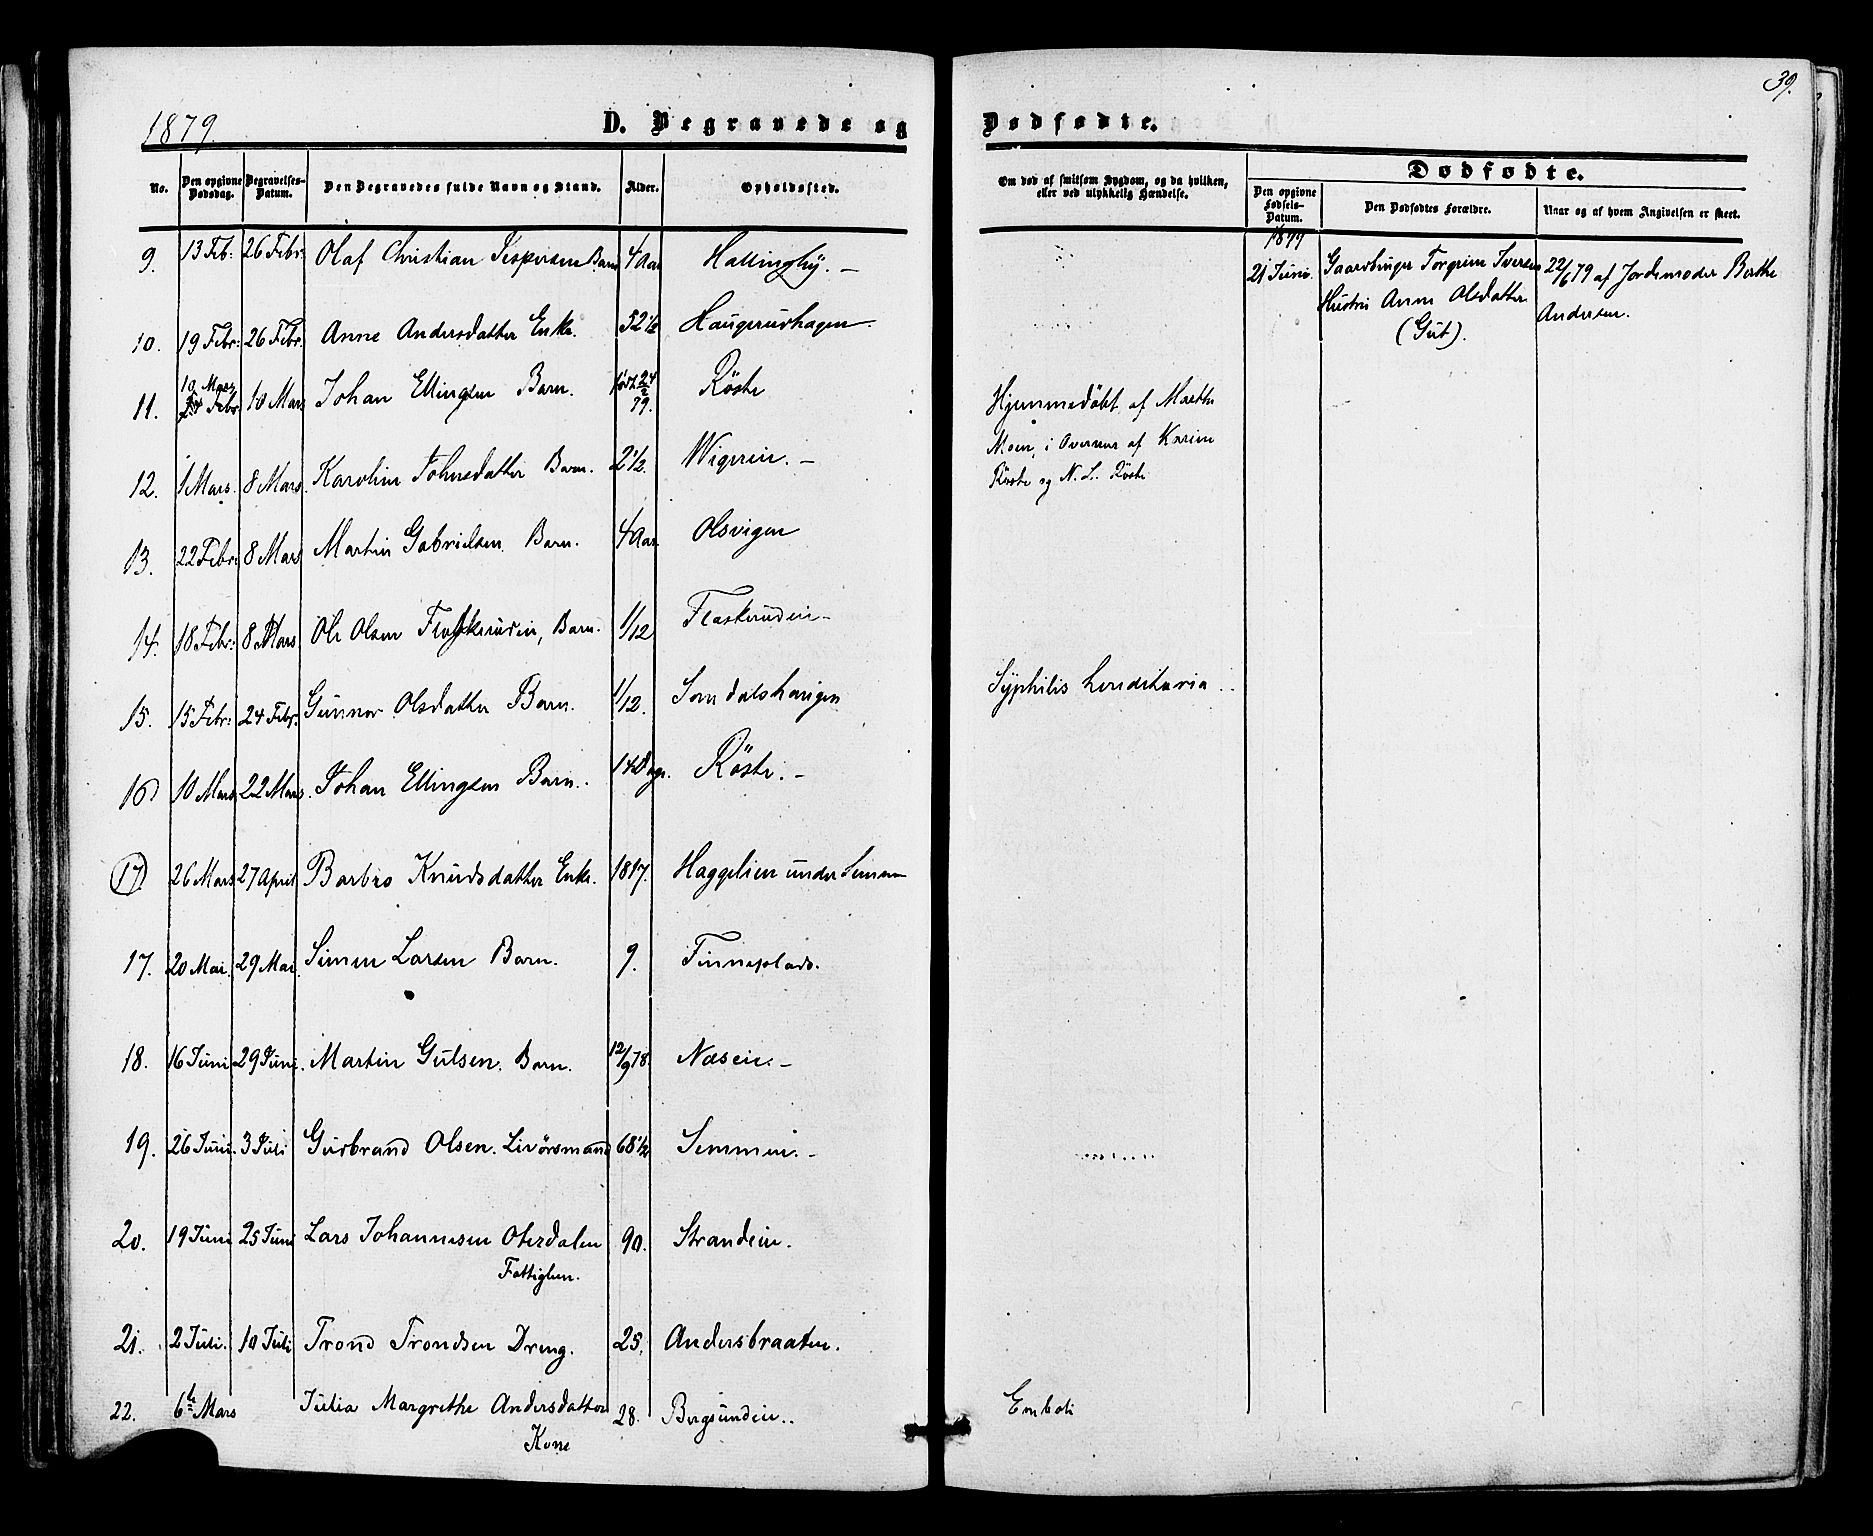 39.
1879.
D. Begravede og Dødfødte.
No. Den opgivne Dødsdag. Begravelses-Datum. Den Begravedes fulde Navn og Stand. Alder. Opholdssted.
Om død af smitsom Sygdom, og da hvilken, eller ved ulykkelig Hændelse.
Dødfødte.
Den opgivne Fødsels-Datum. Den Dødfødtes Forældre. Naar og af hvem Angivelsen er skeet.
9. 13 Feb: 26 Febr: Olaf Christian Jespersen Barn 4 Aar Hallingby. –
10. 19 Febr: 26 Febr. Anne Andersdatter Enke. 52 1/2 Haugerudhagen.
11. 10 Mars Febr 10 Mars Johan Ellingsen Barn. født 24/2 79. Röste
12. 1 Mars. 8 Mars. Karolin Johnsdatter Barn. 2 1/2. Wigerin. –
13. 22 Febr: 8 Mars Martin Gabrielsen. Barn. 4 Aar. Olsvigen
14. 18 Febr: 8 Mars Ole Olsen Flaskerudin, Barn. 1/12 Flaskerudin –
15. 15 Febr: 24 Febr. Gunnor Olsdatter Barn. 1/12. Somdalshaugen
16) 10 Mars 22 Mars. Johan Ellingsen Barn. 14 Dage. Röste. –
17) 26 Mars 27 April Barbro Knudsdatter Enke. 1817. Haggelien under Semmen
17. 20 Mai. 29 Mai Simen Larsen Barn. 9. Finneplads.
18. 16 Juni 29 Juni. Martin Gulsen. Barn. 12/9 78. Næsein. –
19. 26 Juni. 3 Juli Gudbrand Olsen. Livörsmand 68 1/2 Semmin. –
20. 19 Juni 25 Juni Lars Johannesen Oterdalen 90. Strandein.
Fattiglem.
21. 2 Juli. 10 Juli Trond Trondsen Dreng. 25. Andersbraaten.
22. 6te Mars Julia Margrethe Andersdatter 28. Bergsundein.
Kone
Hjemmedöbt af Marthe
Moen, i Overvær af Karin
Röste og N. L. Röste
Syphilis hereditaria
Emboli
1879
21 Juni. Gaardbruger Torgrim Iversen 22/6 79 af Jordemoder Berthe
Hustru Anne Olsdatter Andersen.
(Gut).